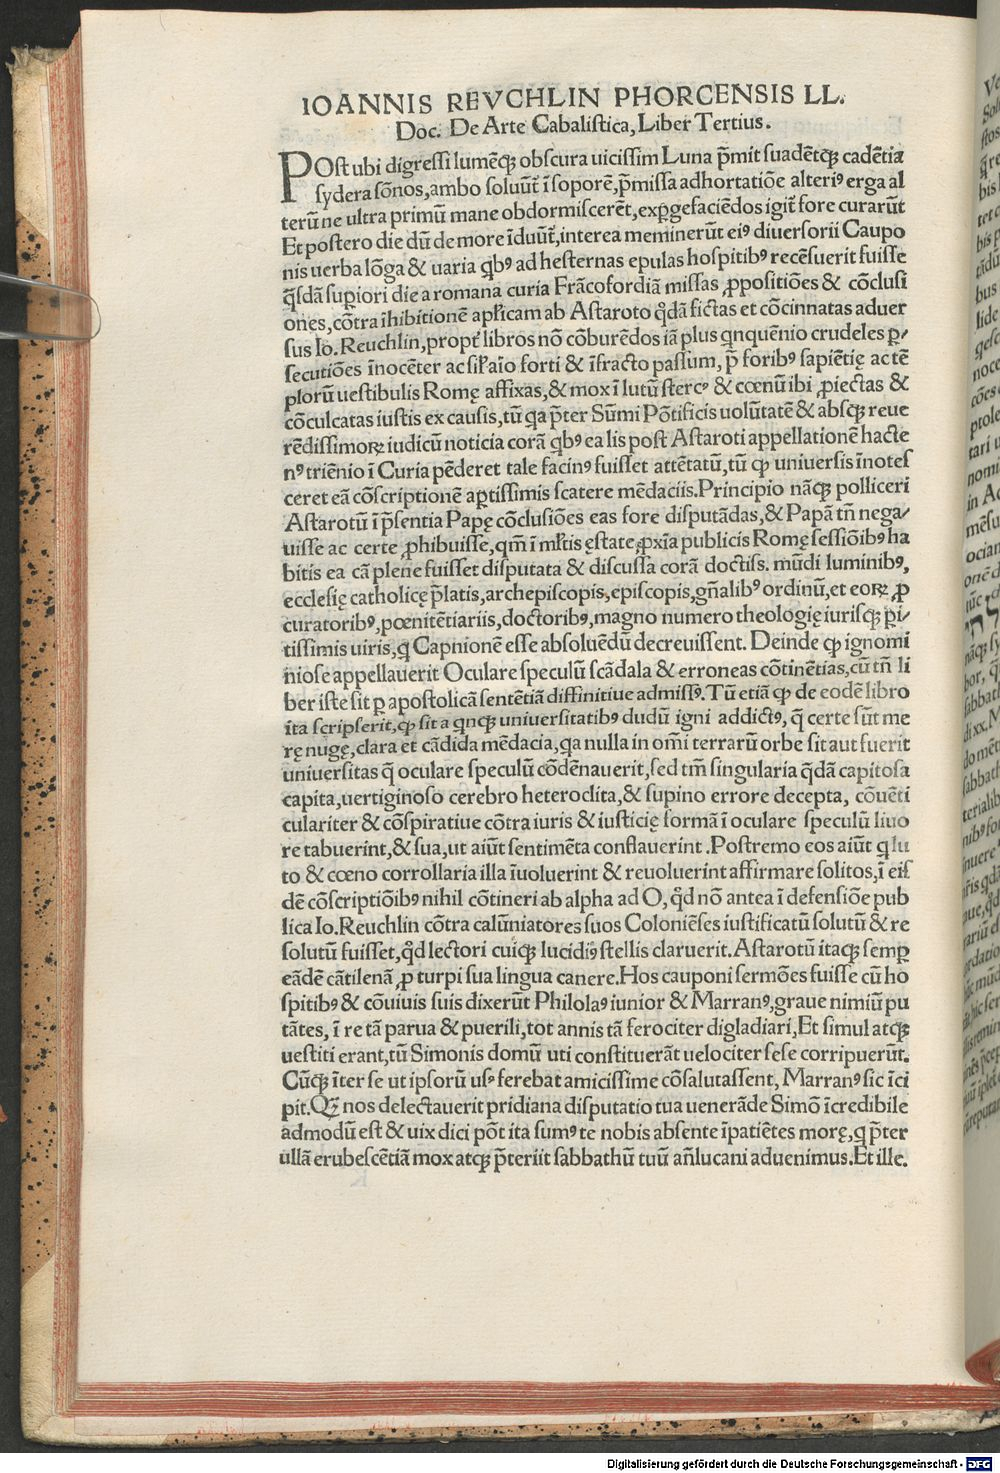 IOANNIS REVCHLIN PHORCENSIS LL.
Doc. De Arte Cabalistica, Liber Tertius.
POst ubi digressi lumẽqꝫ obscura uicissim Luna p̃mit suadẽtqꝫ cadẽtia
sydera sõnos, ambo soluũt̃ ĩ soporẽ, p̃missa adhortatiõe alteriꝰ erga al
terũ ne ultra primũ mane obdormiscerẽt, exꝑgefaciẽdos igit̃ fore curarũt
Et postero die dũ de more ĩduũt̃, interea meminerũt eiꝰ diuersorii Caupo
nis uerba lõga & uaria qbꝰ ad hesternas epulas hospitibꝰ recẽsuerit fuisse
q̃sdã supiori die a romana curia Frãcofordiã missas ꝓpositiões & cõclusi
ones, cõtra ĩhibitionẽ apl̃icam ab Astaroto qd̃ã fictas et cõcinnatas aduer
sus Io. Reuchlin, propt̃ libros nõ cõburẽdos iã plus qnquẽnio crudeles ꝑ/
secutiões inocẽter ac sil̃ aĩo forti & ĩfracto passum, p̃ foribꝰ sapiẽtię ac tẽ
plorũ uestibulis Romę affixas, & mox ĩ lutũ stercꝰ & cœnũ ibi ꝓiectas &
cõculcatas iustis ex causis, tũ qa p̃ter Sũmi Põtificis uolũtatẽ & absqꝫ reue
rẽdissimoꝝ iudicũ noticia corã qbꝰ ea lis post Astaroti appellationẽ hacte
nꝰ triẽnio ĩ Curia pẽderet tale facinꝰ fuisset attẽtatũ, tũ ꝙ uniuersis ĩnotes
ceret eã cõscriptionẽ aꝑtissimis scatere mẽdaciis. Principio nãqꝫ polliceri
Astarotũ ĩ p̃sentia Papę cõclusiões eas fore disputãdas, & Papã tñ nega/
uisse ac certe ꝓhibuisse, qm̃ ĩ ml̃tis ęstate ꝓxĩa publicis Romę sessiõibꝰ ha
bitis ea cã plene fuisset disputata & discussa corã doctiss. mũdi luminibꝰ,
ecclesię catholicę p̃latis, archepiscopis, episcopis, gñalibꝰ ordinũ, et eoꝝ ꝓ
curatoribꝰ, pœnitẽtiariis, doctoribꝰ, magno numero theologię iurisqꝫ ꝑi/
tissimis uiris, q Capnionẽ esse absoluẽdũ decreuissent. Deinde ꝙ ignomi
niose appellauerit Oculare speculũ scãdala & erroneas cõtinẽtias, cũ tñ li
ber iste sit ꝑ apostolicã sentẽtiã diffinitiue admissꝰ. Tũ etiã ꝙ de eodẽ libro
ita scripserit, ꝙ sit a qnqꝫ uniuersitatibꝰ dudũ igni addictꝰ, q̃ certe sũt me
rę nugę, clara et cãdida mẽdacia, qa nulla in om̃i terrarũ orbe sit aut fuerit
uniuersitas q̃ oculare speculũ cõdẽnauerit, sed tm̃ singularia q̃dã capitosa
capita, uertiginoso cerebro heteroclita, & supino errore decepta, cõuẽti
culariter & cõspiratiue cõtra iuris & iusticię formã ĩ oculare speculũ liuo
re tabuerint, & sua, ut aiũt sentimẽta conflauerint. Postremo eos aiũt q lu
to & cœno corrollaria illa ĩuoluerint & reuoluerint affirmare solitos, ĩ eis
dẽ cõscriptiõibꝰ nihil cõtineri ab alpha ad O, qd̃ nõ antea ĩ defensiõe pub
lica Io. Reuchlin cõtra calũniatores suos Coloniẽses iustificatũ solutũ & re
solutũ fuisset, qd̃ lectori cuiqꝫ lucidiꝰ stellis claruerit. Astarotũ itaqꝫ sempꝑ
eãdẽ cãtilenã, ꝓ turpi sua lingua canere. Hos cauponi sermões fuisse cũ ho
spitibꝰ & cõuiuis suis dixerũt Philolaꝰ iunior & Marranꝰ, graue nimiũ pu
tãtes, ĩ re tã parua & puerili, tot annis tã ferociter digladiari, Et simul atqꝫ
uestiti erant, tũ Simonis domũ uti constituerãt uelociter sese corripuerũt.
Cũqꝫ ĩter se ut ipsorũ usꝰ ferebat amicissime cõsalutassent, Marranꝰ sic ĩci
pit. Q̃ nos delectauerit pridiana disputatio tua uenerãde Simõ ĩcredibile
admodũ est & uix dici põt ita sumꝰ te nobis absente ĩpatiẽtes morę, q p̃ter
ullã erubescẽtiã mox atqꝫ p̃teriit sabbathũ tuũ añlucani aduenimus. Et ille.
Digitalisierung gefördert durch die Deutsche Forschungsgemeinschaft - DFG